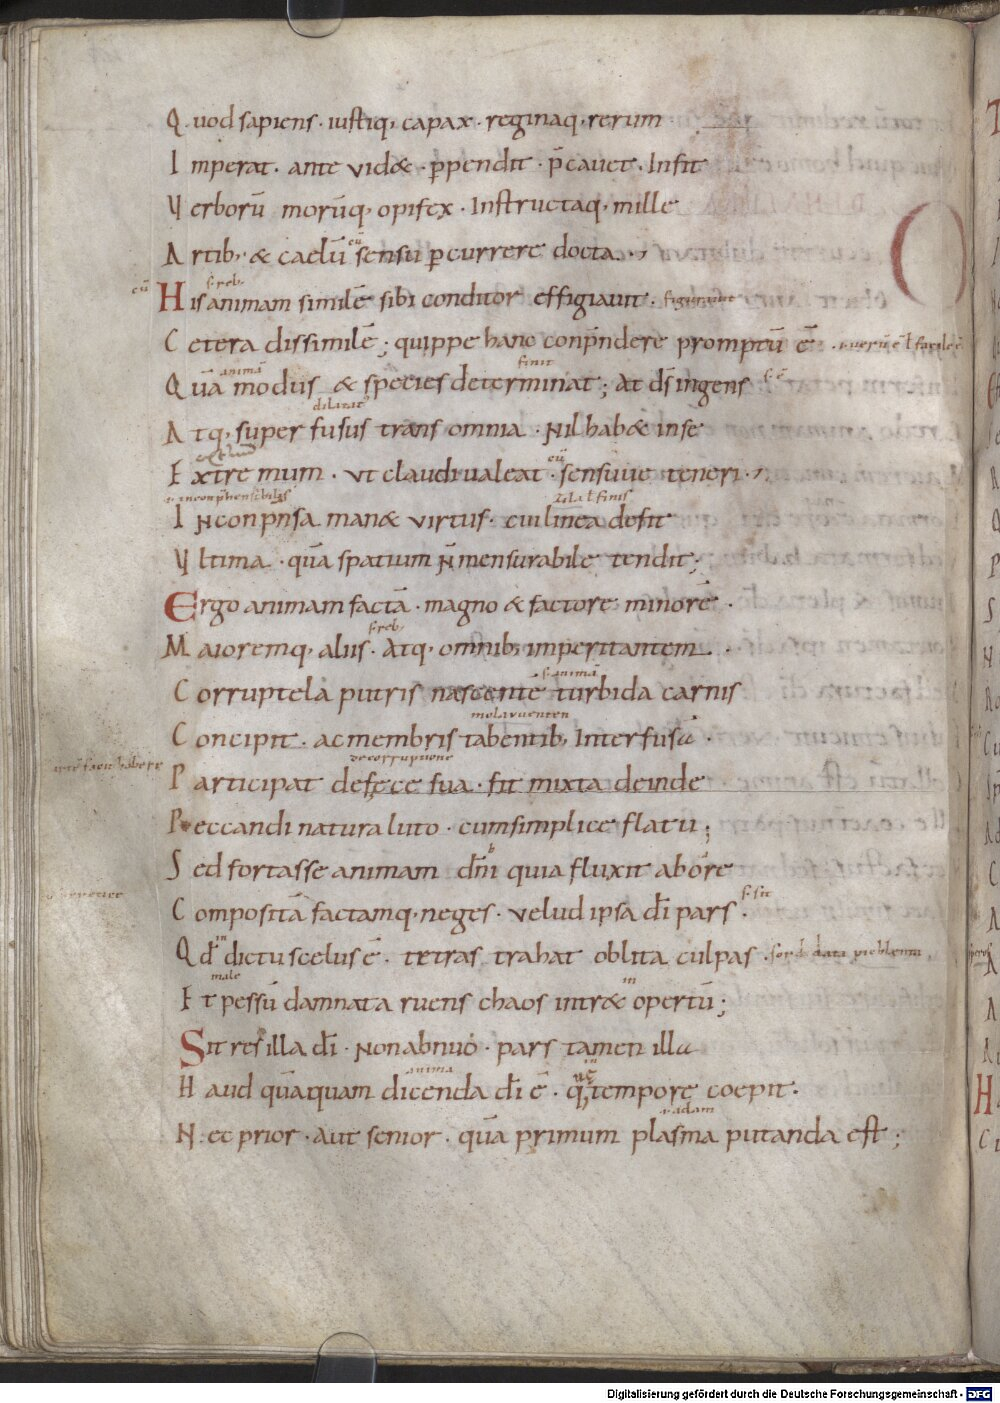 Quod sapiens · iustiq; capax · reginaq; rerum
Imperat · ante vid& · ꝑpendit · p̄cauet · Insit
Verborū morūq; opifex · Instructaq; mille
eū
Artib; · & caelū sensu ꝑcurrere docta ·
s· reb;
His animam similē sibi conditor effigiauit · figurauit
Cetera dissimilē ; quippe hanc conp̄ndere promptū ē̄
animā finit
Quā modus & species determinat ; At d̄s ingens
dilatat
Atq; super fusus trans omnia · Nil hab& inse
eū
Extremum · vt claudi ualeat · sensuue teneri ·
inconp̄hensibilis finis
Inconp̄nsa man& virtus · cui linea desit
Vltima · quā spatium N̄ mensurabile tendit ;
Ergo animam factā · magno & factore minorē ·
s· reb;
Maioremq; aliis · Atq; omnib; imperitantem ·
s· animā
Corruptela putris nascente turbida carnis
Concipit · ac membris tabentib; Interfusa ·
de corruptione
Participat defęce sua · fit mixta deinde
Peccandi natura luto · cum simplice flatu ;
Sed fortasse animam dn̄i quia fluxit abore
s· sit
Compositā factamq; neges · velud ipsa dī pars ·
in
Qd̄ dictu scelus ē · tetras trahat oblita culpas
male in
Et pessū damnata ruens chaos intr& opertū ;
Sit res illa dī · Non abnuo · pars tamen illa
anima
Haud quāquam dicenda dī ē · q; tempore coepit ·
adam
Nec prior · Aut senior · quā primum plasma putanda est ;
Digitalisierung gefördert durch die Deutsche Forschungsgemeinschaft - DFG